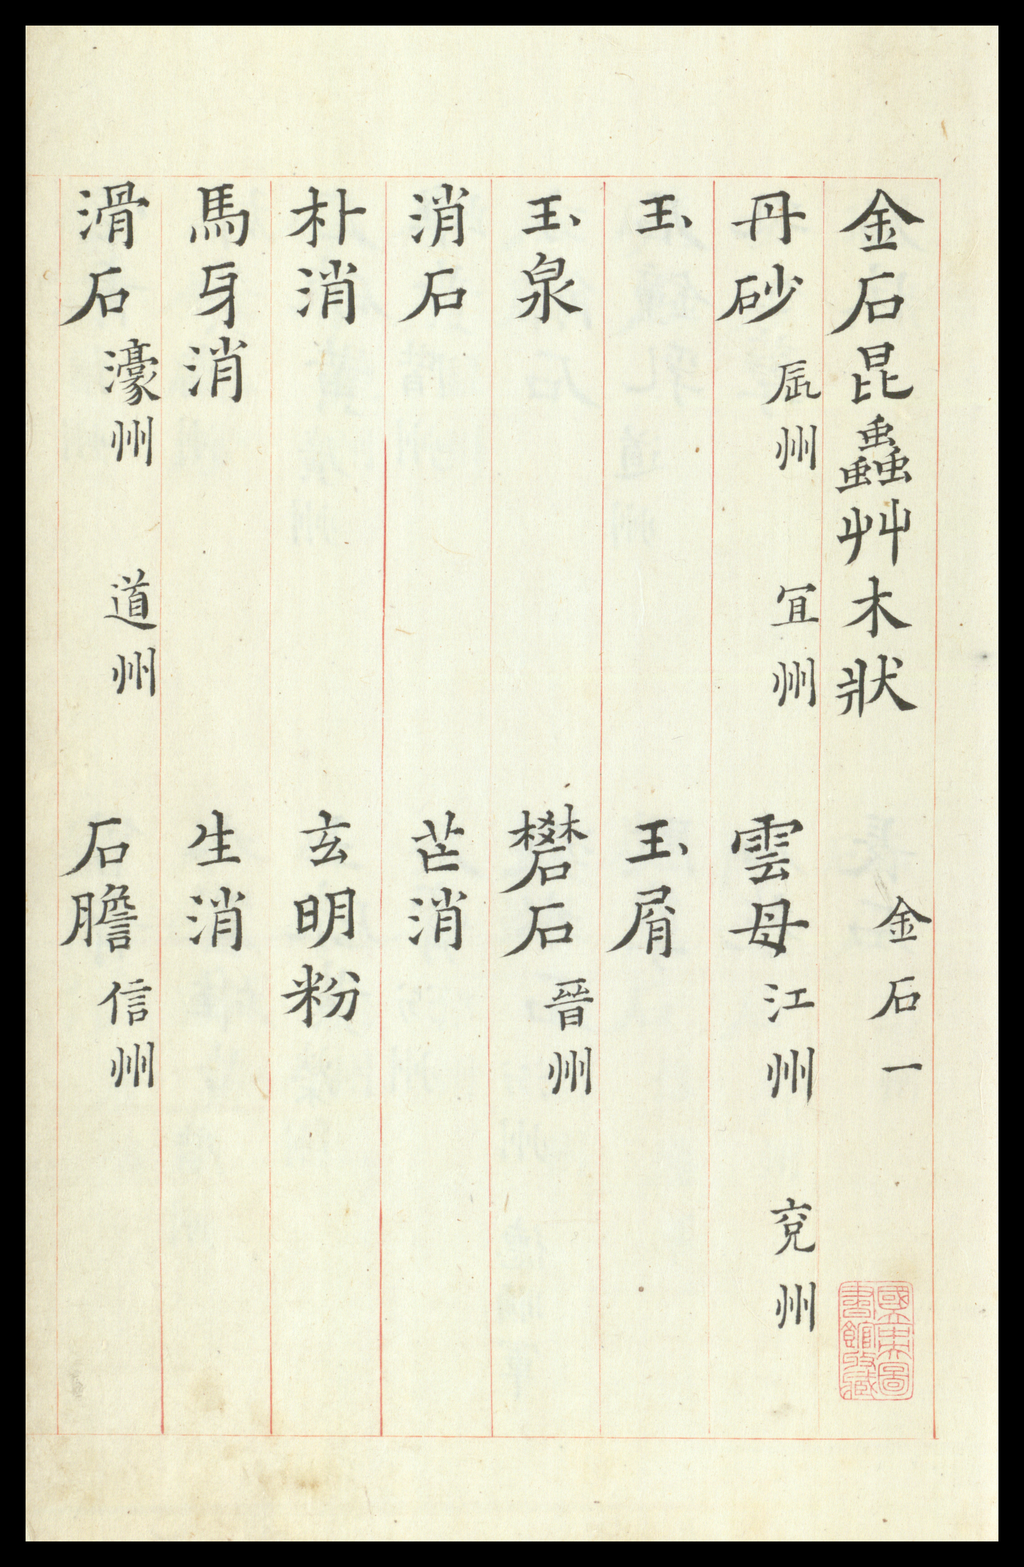 金石昆蟲艸木狀 金石一
丹砂 辰州 冝州 雲母 江州 兖州
玉 玉屑
玉泉 礬石 晉州
消石 芒消
朴消 玄明粉
馬牙消 生消
滑石 濠州 道州 石膽 信州
國立中央圖書館收藏